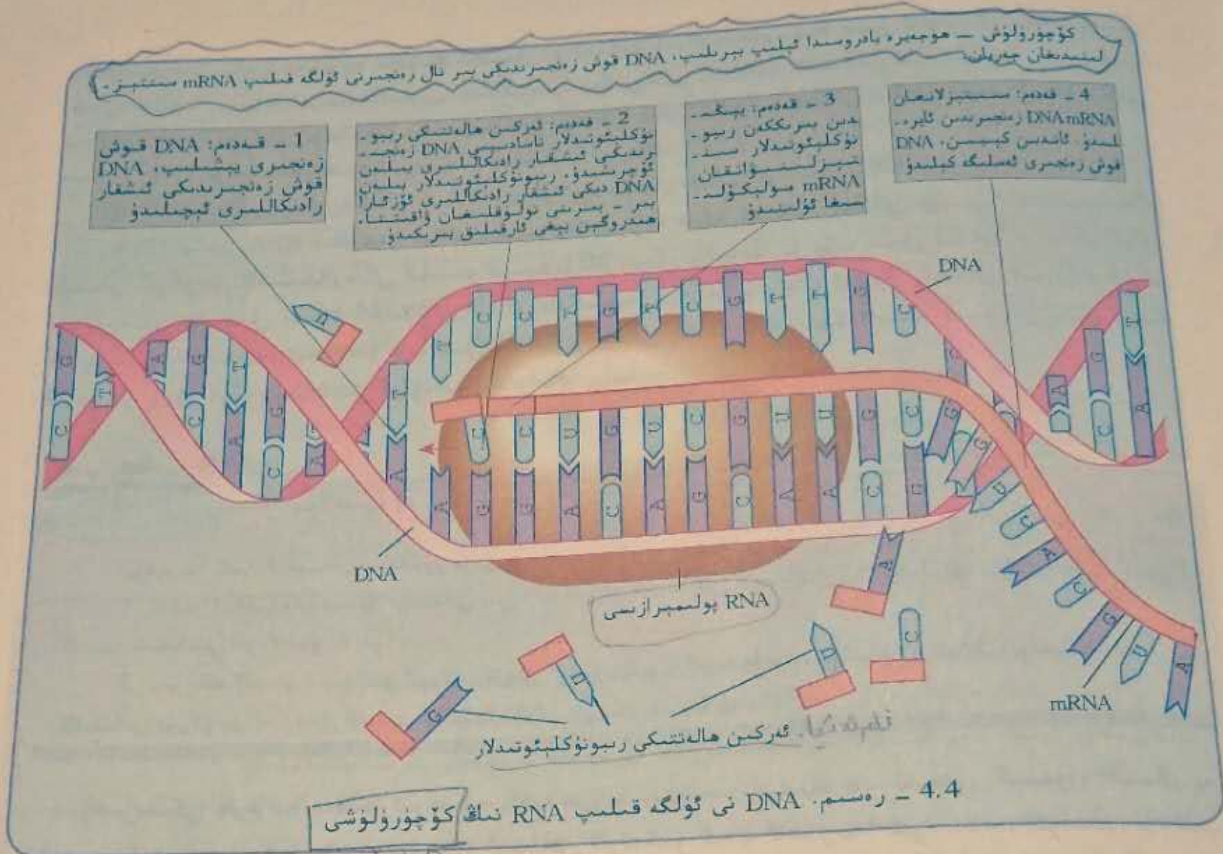 كۆچۈرۈلۈش — ھۈجەيرە يادروسىدا ئېلىپ بېرىلىپ، DNA قوش زەنجىرىدىكى بىر تال زەنجىرنى ئۈلگە قىلىپ mRNA سىنتېز -
لىنىدىغان جەريان.
1 - قەدەم: DNA قوش
زەنجىرى يېشىلىپ، DNA
قوش زەنجىرىدىكى ئىشقار
رادىكاللىرى ئېچىلىدۇ
2 - قەدەم: ئەركىن ھالەتتىكى رىبو-
نۇكلېئوتىدلار تاسادىپىي DNA زەنجى-
رىدىكى ئىشقار رادىكاللىرى بىلەن
ئۇچرىشىدۇ، رىبونۇكلېئوتىدلار بىلەن
DNA دىكى ئىشقار رادىكاللىرى ئۆزئارا
بىر - بىرىنى تولۇقلىغان ۋاقىتتا،
ھىدروگېن بېغى ئارقىلىق بىرىكىدۇ
3 - قەدەم: يېڭى-
دىن بىرىككەن رىبو-
نۇكلېئوتىدلار سىن-
تېزلىنىۋاتقان
mRNA مولېكۇلى-
سىغا ئۇلىنىدۇ
4 - قەدەم: سىنتېزلانغان
mRNA DNA زەنجىرىدىن ئايرى-
لىدۇ، ئاندىن كېيىن، DNA
قوش زەنجىرى ئەسلىگە كېلىدۇ
DNA
U
T C C T G T C G T T G C
C C U G U C G U U G C
A G G A C A G C A A C G
DNA
RNA پولىمېرازىسى
mRNA
G U U A C
ئەركىن ھالەتتىكى رىبونۇكلېئوتىدلار
4.4 - رەسىم. DNA نى ئۈلگە قىلىپ RNA نىڭ كۆچۈرۈلۈشى